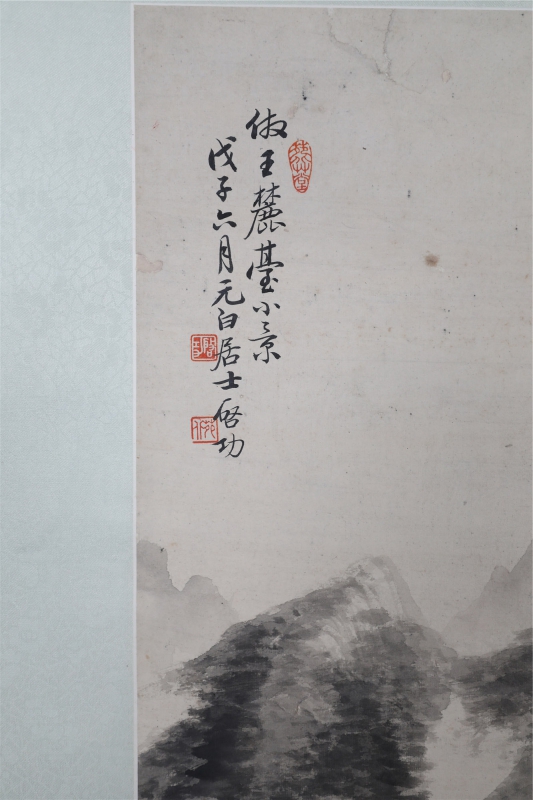 倣王麓臺小景
戊子六月元白居士啓功